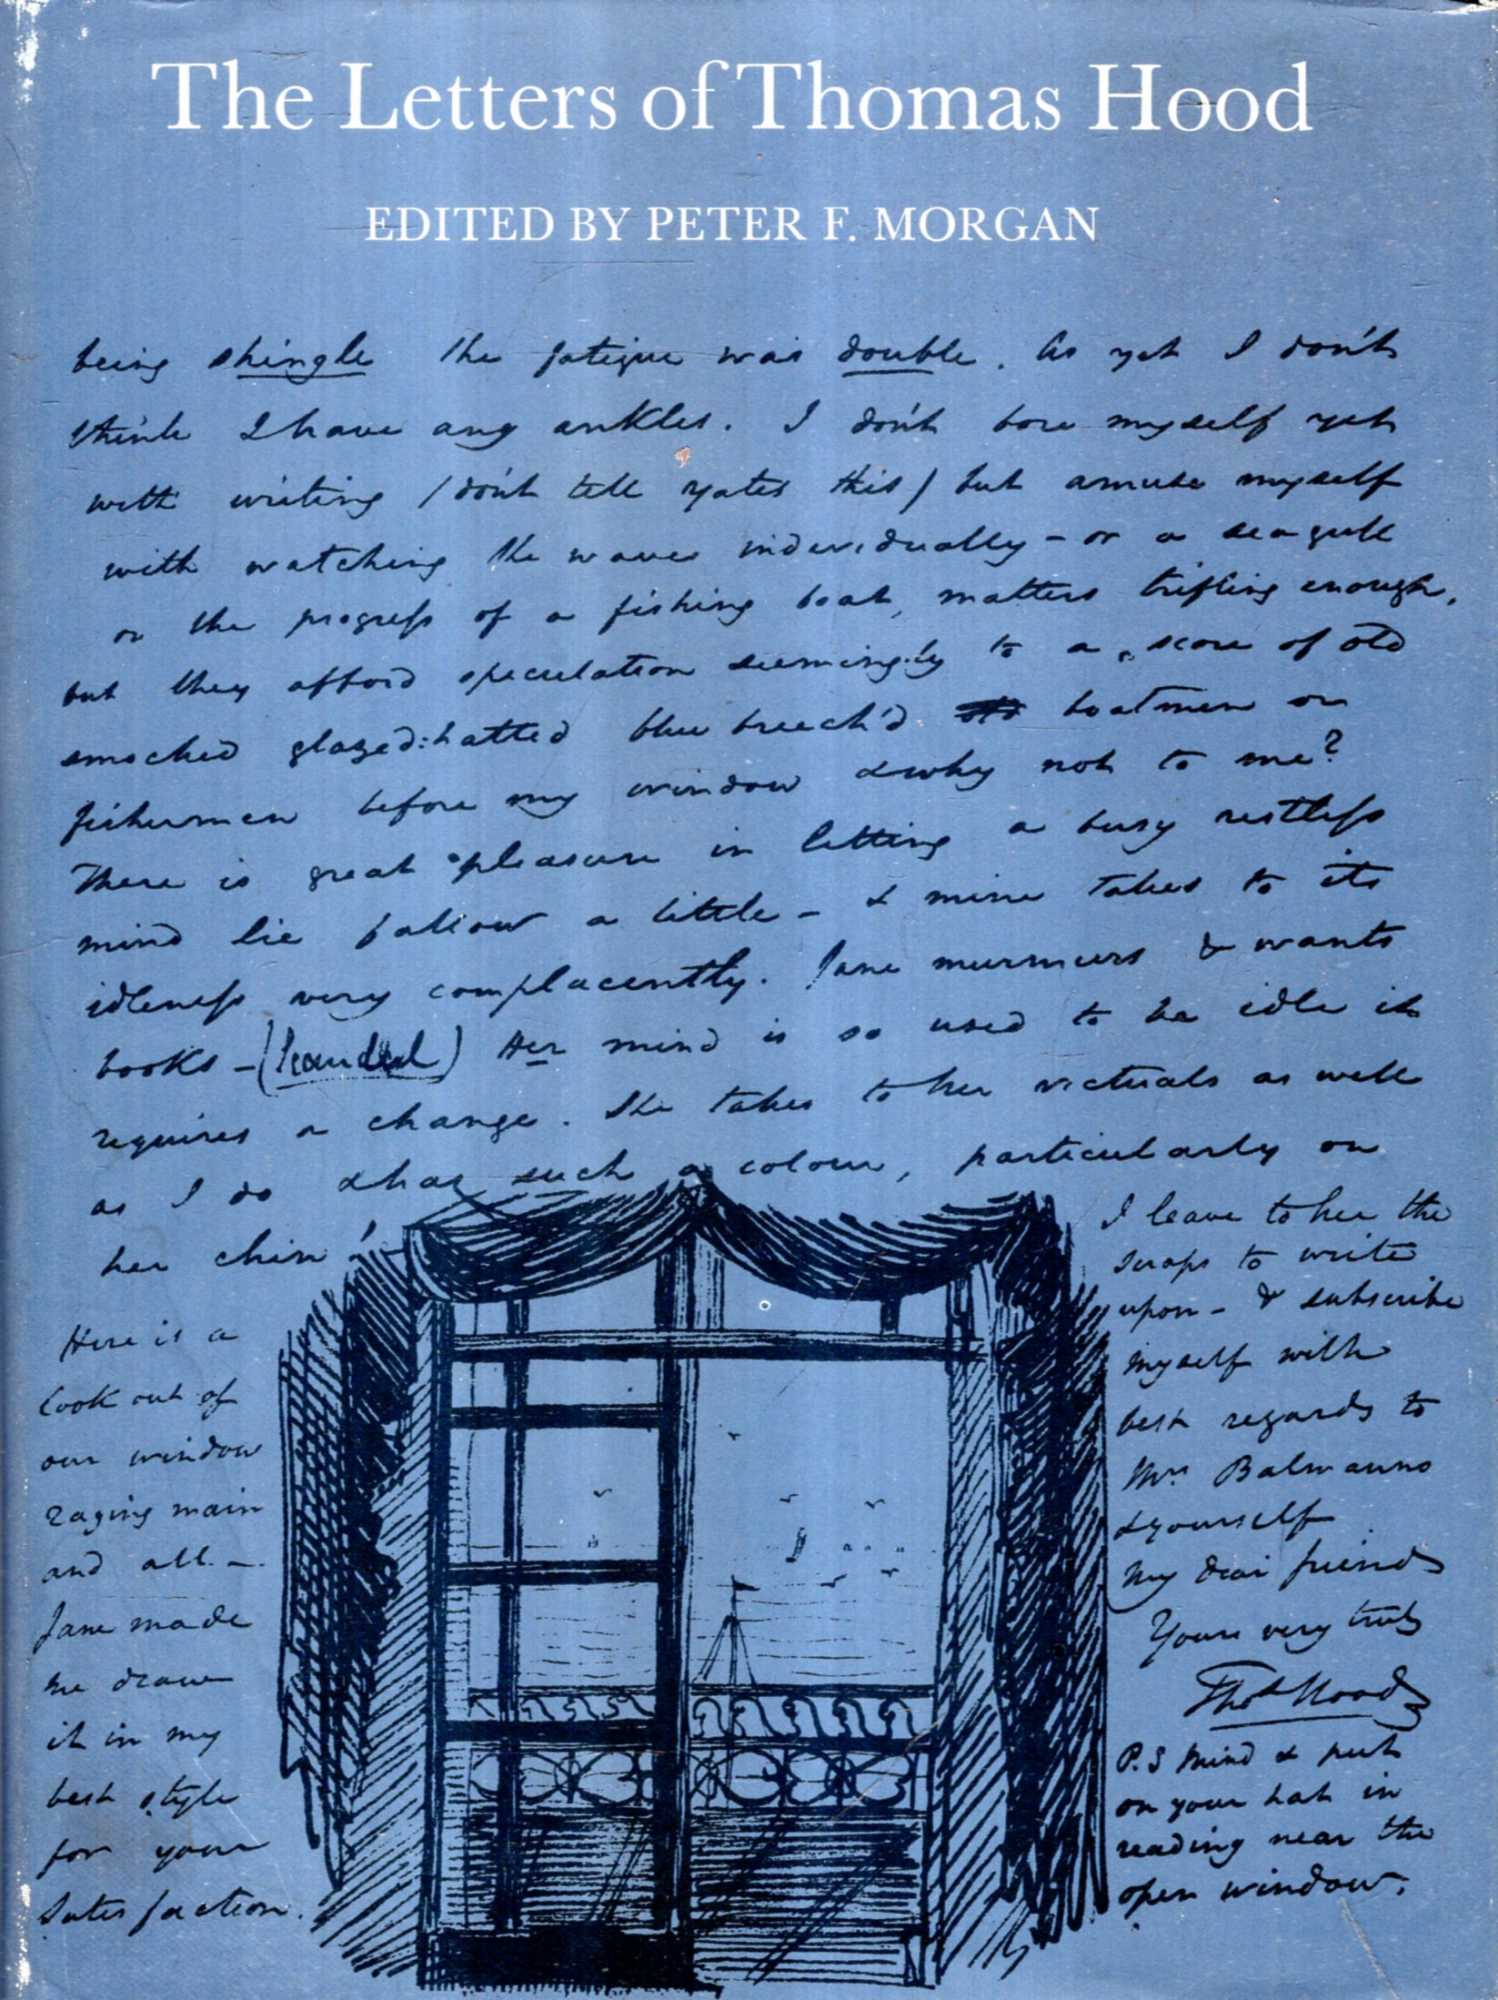 The Letters of Thomas Hood
EDITED BY PETER F. MORGAN
being shingle the fatigue was double. As yet I don't
think I have any ankles. I don't bore myself yet
with writing (don't tell Yates this) but amuse myself
with watching the waves individually – or a sea gull
or the progress of a fishing boat, matters trifling enough,
but they afford speculation seemingly to a score of old
smocked glazed-hatted blue breech'd boatmen or
fishermen before my window & why not to me?
There is great pleasure in letting a busy restless
mind lie fallow a little – & mine takes to its
idleness very complacently. Jane murmurs & wants
books – (scandal) Her mind is so used to be idle it
requires a change. She takes to her victuals as well
as I do & has such a colour, particularly on
her chin!
Here is a
look out of
our window
raging main
and all. –
Jane made
me draw
it in my
best style
for your
satisfaction.
I leave to her the
scraps to write
upon – & subscribe
myself with
best regards to
Mrs Balmanno
& yourself
My dear friend
Yours very truly
Thos Hood
P.S Mind & put
on your hat in
reading near the
open window.